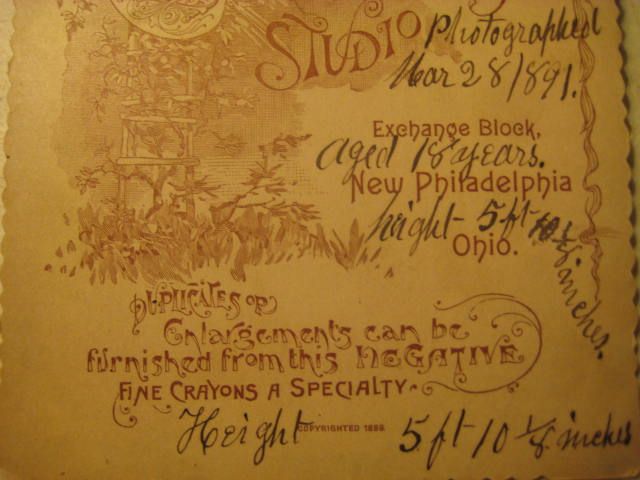 STUDIO
Photographed
Mar 28/891.
Exchange Block,
aged 18 years.
New Philadelphia
height 5 ft 10 1/8 inches.
Ohio.
DUPLICATES OR
Enlargements can be
furnished from this NEGATIVE
FINE CRAYONS A SPECIALTY.
COPYRIGHTED 1889.
Height 5 ft 10 1/8 inches